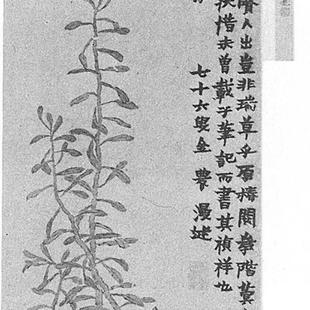 賓人出豈非瑞草乎石椿閣辇階蓂
淡惜未曾載于筆記而書其禎祥也
七十六叟金農漫述